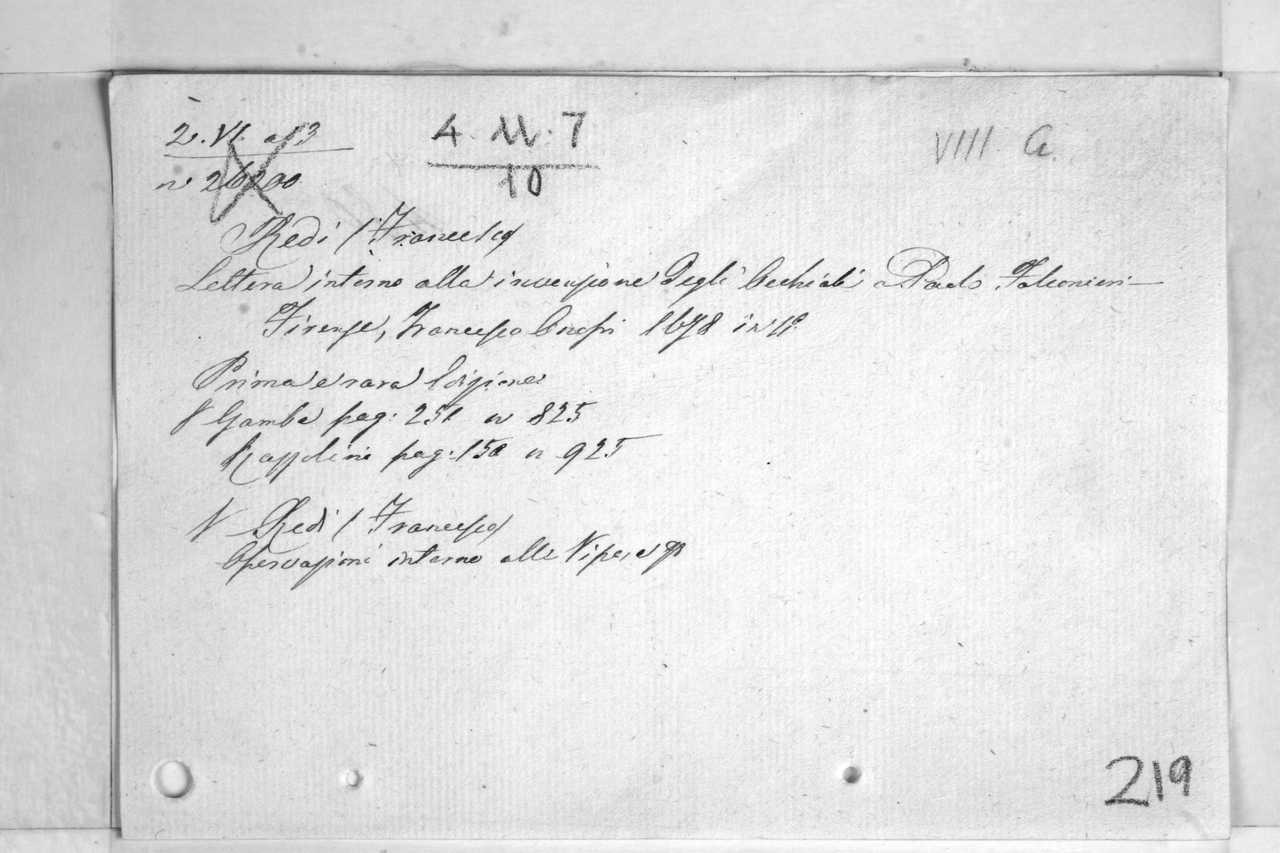 2. VI. a 13
4. 11. 7
VIII G.
n 26200
10
Redi / Francesco
Lettera intorno alla invenzione degli Occhiali a Paolo Falconieri —
Firenze, Francesco Onofri 1678 in 4º
Prima e rara Edizione
V Gamba pag: 251 n 825
Razzolini pag: 150 n 925
V Redi / Francesco
Osservazioni intorno alle Vipere
219